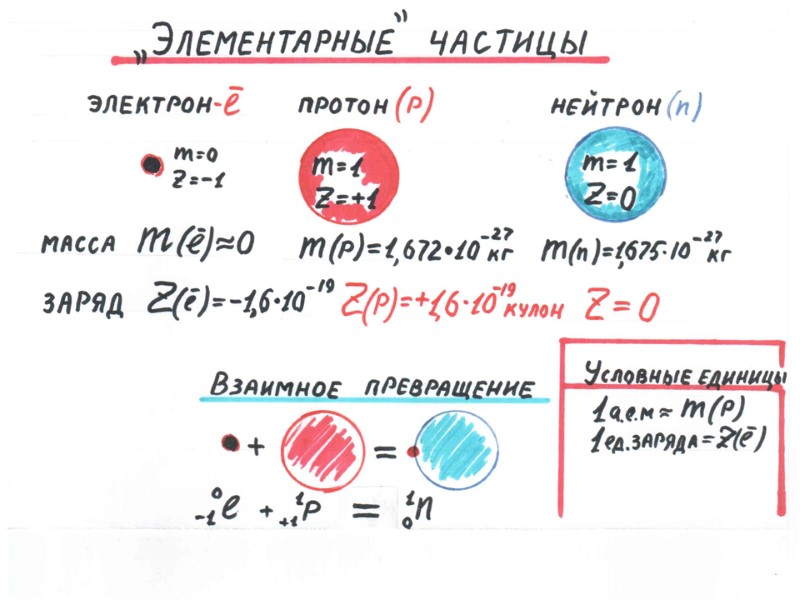 „Элементарные" частицы
электрон-ē протон (p) нейтрон (n)
m=0 z=-1
m=1 z=+1
m=1 z=0
масса m(ē)≈0 m(p)=1,672•10⁻²⁷ кг m(n)=1,675•10⁻²⁷ кг
заряд Z(ē)=-1,6•10⁻¹⁹ Z(p)=+1,6•10⁻¹⁹ кулон Z=0
Взаимное превращение
+ =
⁰₋₁e + ¹₊₁p = ¹₀n
Условные единицы
1 а.е.м ≈ m(p)
1 ед. заряда = Z(ē)